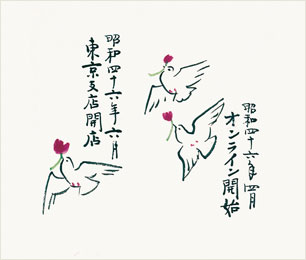 昭和四十六年四月
オンライン開始
昭和四十六年六月
東京支店開店